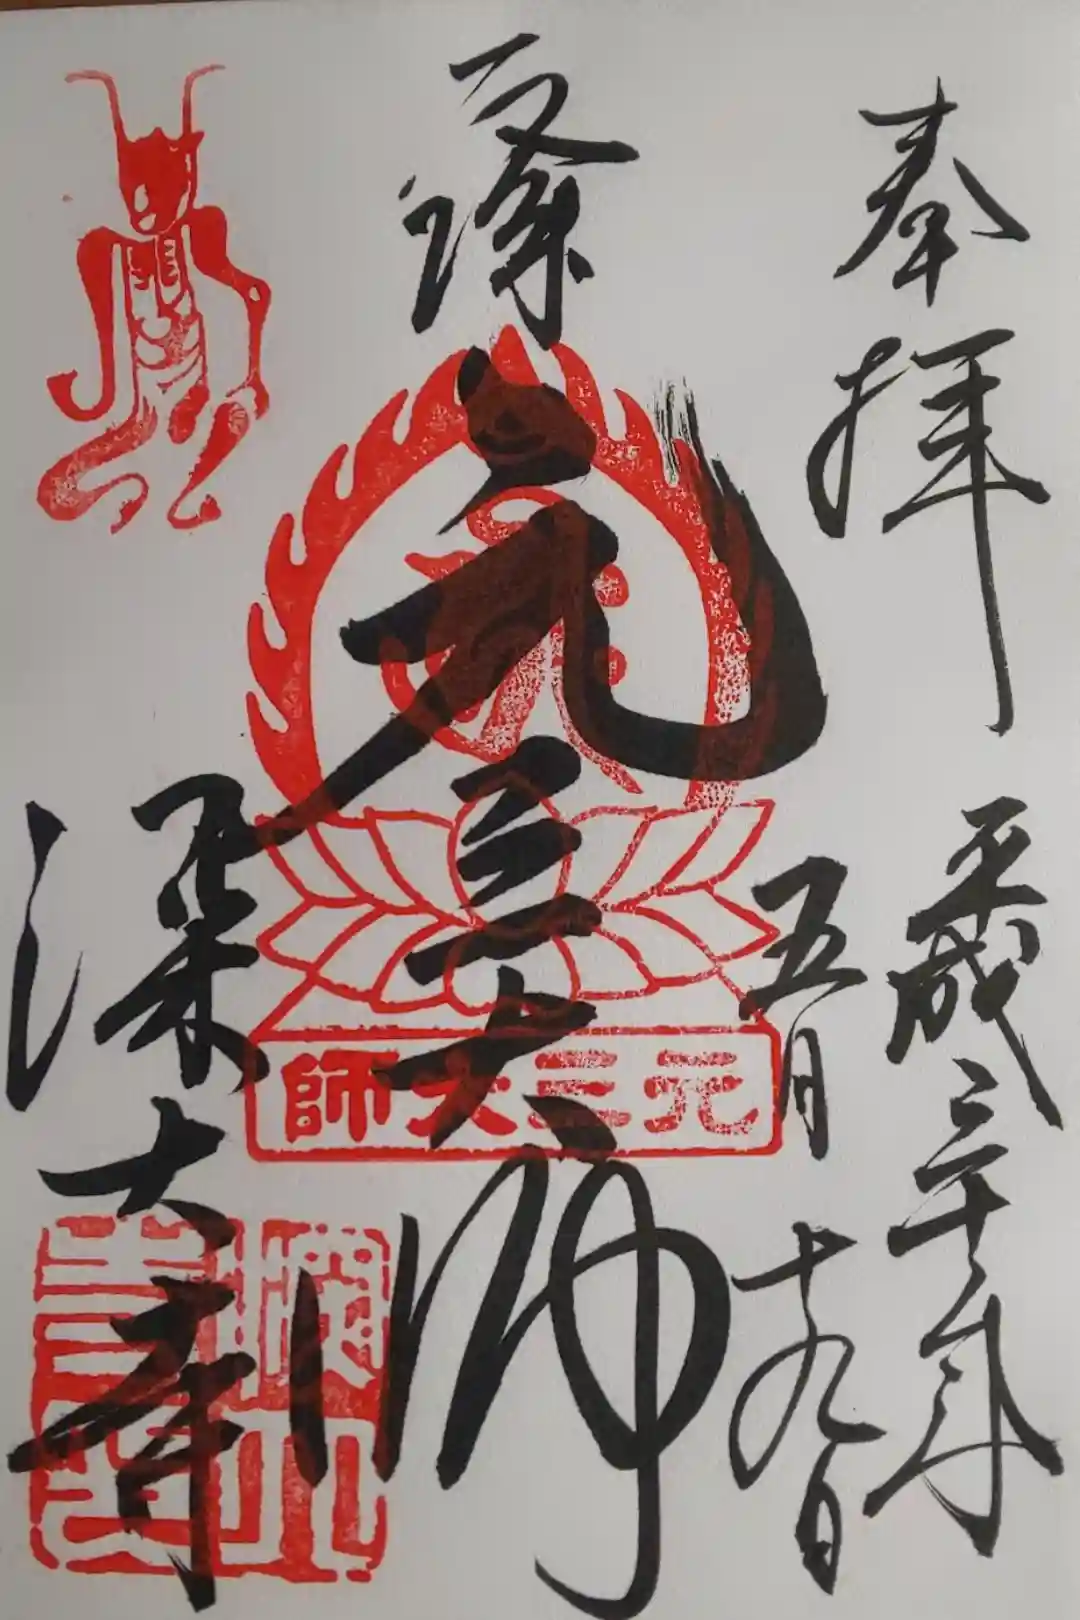 奉拝
平成三十年
五月十九日
厄除
元三大師
元三大師
深大寺